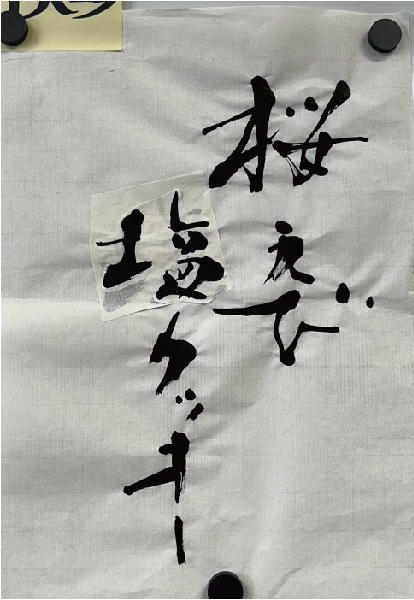 桜えび
塩クッキー